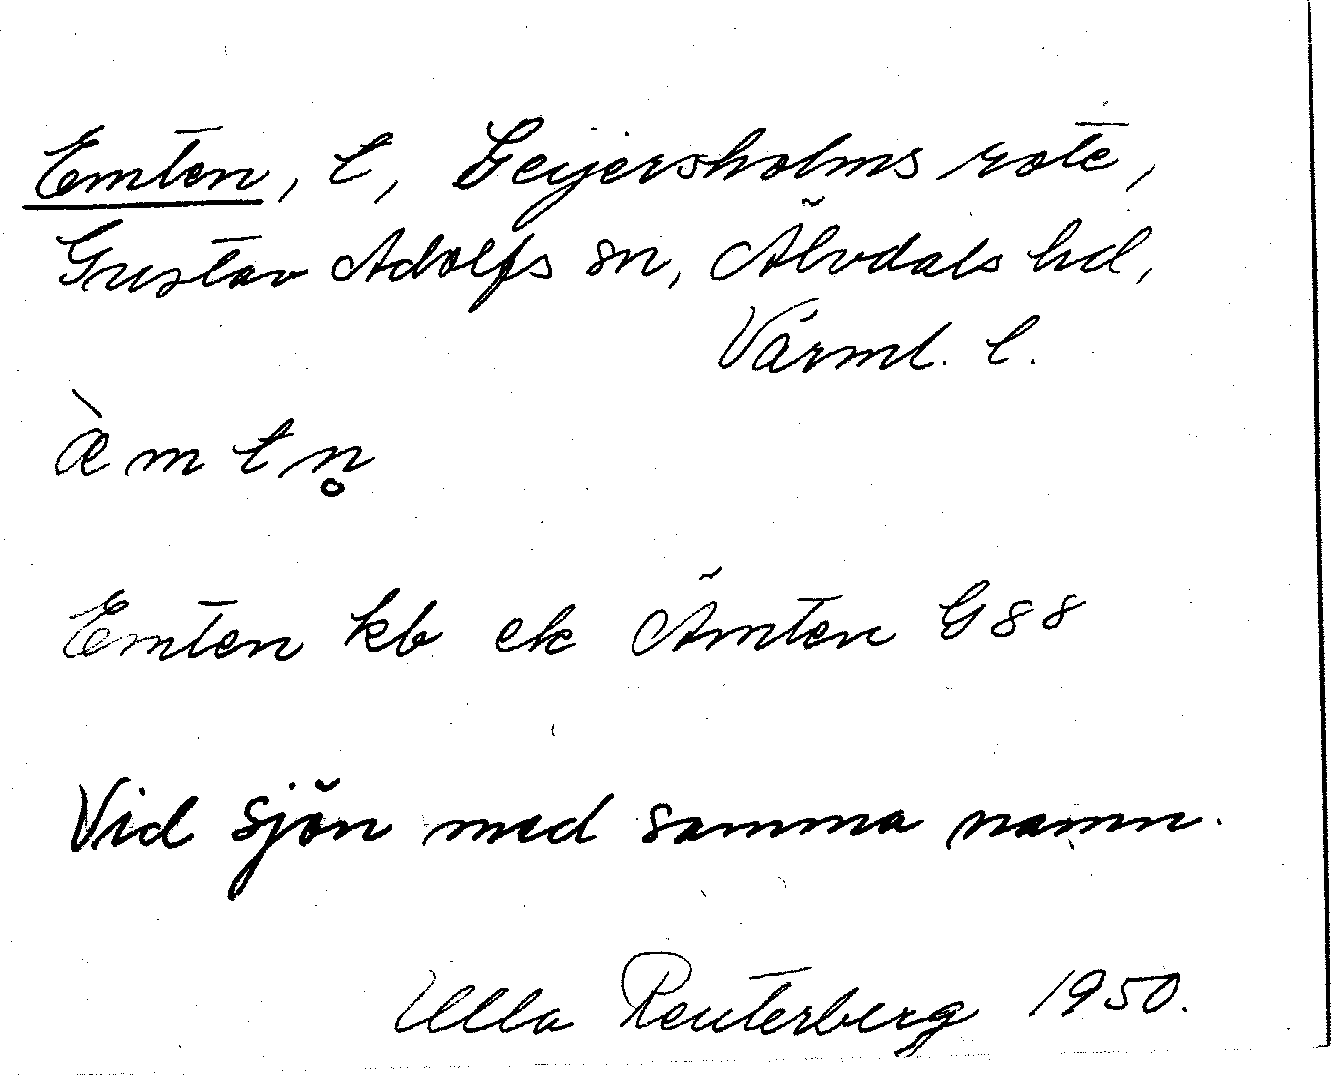 Emten, t, Geijersholms rote,
Gustav Adolfs sn, Älvdals hd,
Värml. l.
æ̀mtn̥
Emten kb ek Ämten G88
Vid sjön med samma namn.
Ulla Reuterberg 1950.